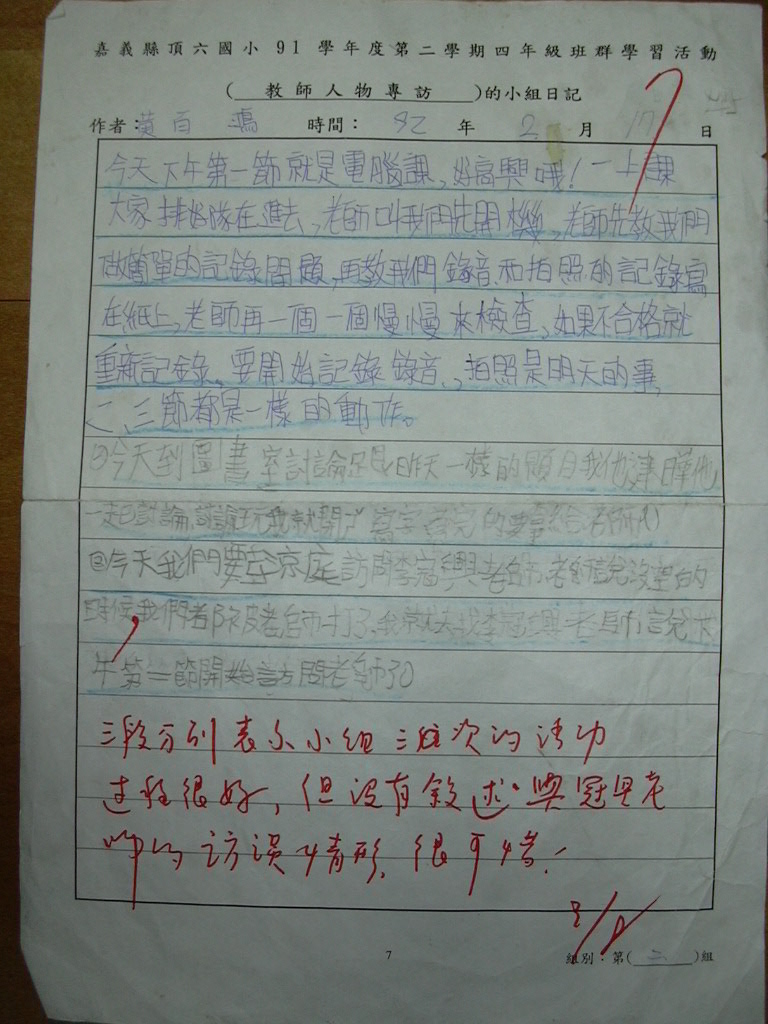 嘉義縣頂六國小91學年度第二學期四年級班群學習活動
(教師人物專訪)的小組日記
作者:黃百鴻 時間:92年2月17日
今天下午第一節就是電腦課,好高興哦!一上課
大家排好隊在進去,老師叫我們先開機,老師先教我們
做簡單的記錄問題,再教我們錄音和拍照的記錄寫
在紙上,老師再一個一個慢慢來檢查,如果不合格就
重新記錄。要開始記錄錄音、拍照是明天的事,
二、三節都是一樣的動作。
②今天到圖書室討論 昨天一樣的題目我
一起討論, 寫字 寫完的要拿給老師
③今天我們要 訪問李冠興老師,老師說沒空的
時候, 我就去找李冠興老師說下
午第二節開始訪問老師了。
三段分別表示小組三次的活动
过程很好,但沒有敘述與冠興老
师的访谈情形,很可惜!
7
組別:第(二)組